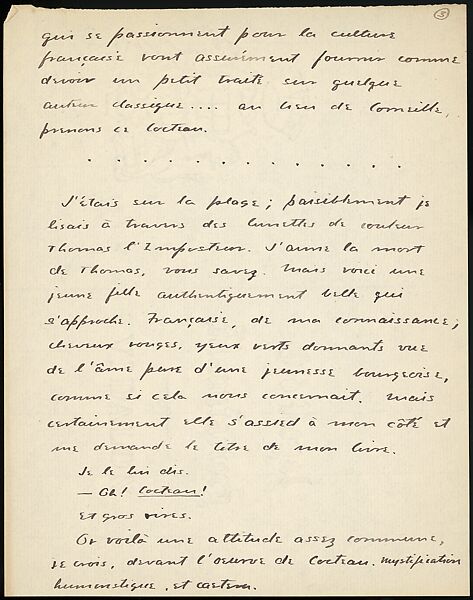 3
qui se passionnent pour la culture
française vont assurément fournir comme
devoir un petit traité sur quelque
auteur classique.... au lieu de Corneille,
prenons ce Cocteau.
. . . . . . . . . . . . .
J'étais sur la plage; paisiblement je
lisais à travers des lunettes de couleur
Thomas l'Imposteur. J'aime la mort
de Thomas, vous savez. Mais voici une
jeune fille authentiquement belle qui
s'approche. Française, de ma connaissance;
cheveux rouges, yeux verts donnants vue
de l'âme pure d'une jeunesse bourgeoise,
comme si cela nous concernait. Mais
certainement elle s'assied à mon côté et
me demande le titre de mon livre.
Je le lui dis.
— Oh! Cocteau!
Et gros rires.
Or voilà une attitude assez commune,
je crois, devant l'oeuvre de Cocteau. Mystification
humoristique, et caetera.